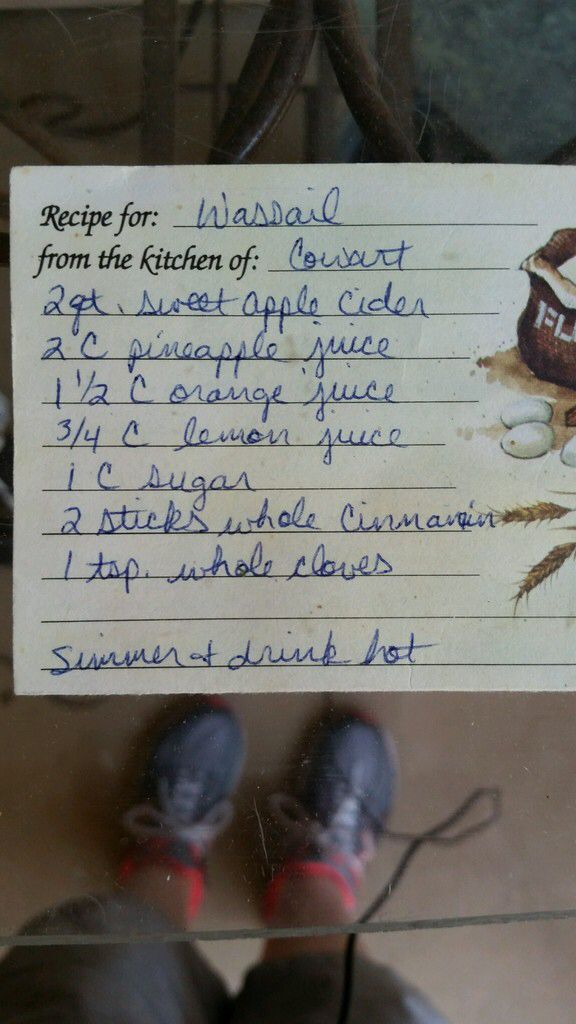 Recipe for: Wassail
from the kitchen of: Cowart
2 qt. sweet apple cider
2 C pineapple juice
1 1/2 C orange juice
3/4 C lemon juice
1 C sugar
2 sticks whole Cinnamon
1 tsp. whole cloves
Simmer & drink hot
FL